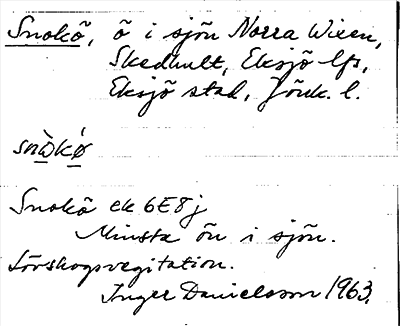 Snokö, ö i sjön Norra Wixen,
Skedhult, Eksjö lfs,
Eksjö stad, Jönk. l.
Snokö ek 6E8j
Minsta ön i sjön.
Lövskogsvegitation.
Inger Danielsson 1963.